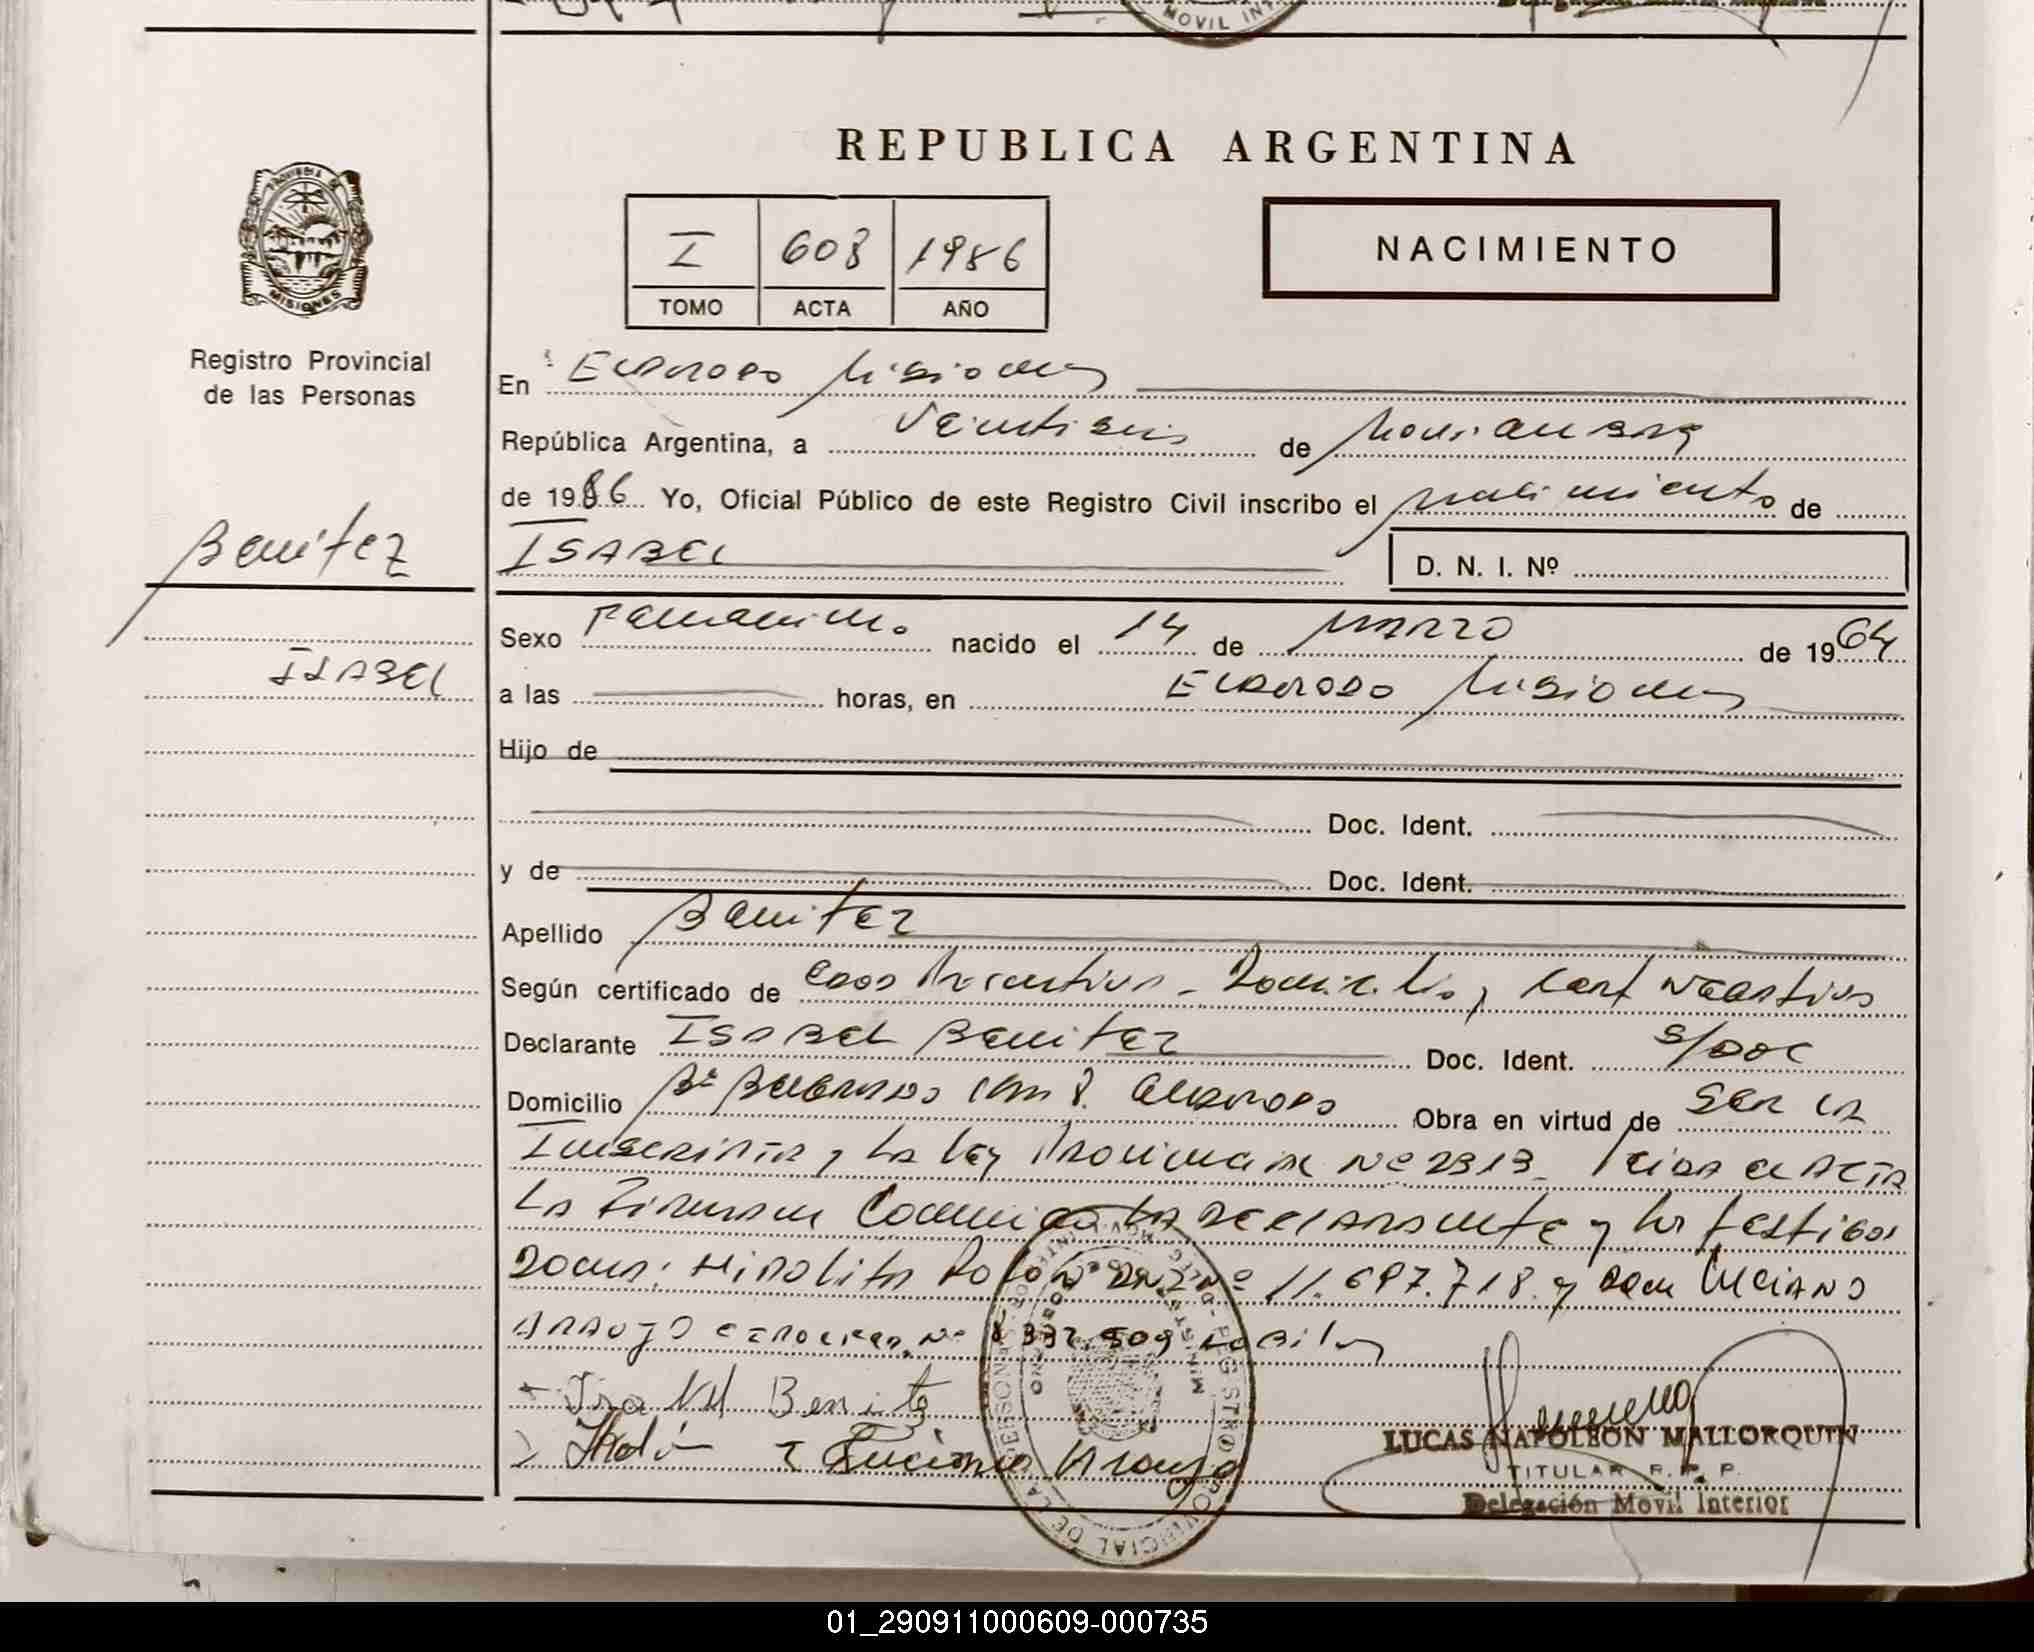 MOVIL INT
REPUBLICA ARGENTINA
PROVINCIA DE
MISIONES
I 608 1986
TOMO ACTA AÑO
NACIMIENTO
Registro Provincial
de las Personas
En Eldorado Misiones
República Argentina, a Veintiseis de Noviembre
de 1986 Yo, Oficial Público de este Registro Civil inscribo el nacimiento de
Benitez
ISABEL
D. N. I. Nº
Sexo Femenino nacido el 14 de Marzo de 1964
ISABEL
a las horas, en Eldorado Misiones
Hijo de
Doc. Ident.
y de Doc. Ident.
Apellido Benitez
Según certificado de Domicilio, Cert Negativo
Declarante ISABEL Benitez Doc. Ident. s/Doc
Domicilio Bº Km 8. Eldorado Obra en virtud de Ser la
Inscripta y la Ley Provincial Nº 2313. Leida el ACTA
La Firman Conmigo la Declarante y los testigos
Dona: Hipolita DNI Nº 11.697.718. y Don Luciano
Arroyo Nº
Benite
Luciano Arroyo
LUCAS NAPOLEON MALLORQUIN
TITULAR R. P. P.
Delegación Movil Interior
REGISTRO PROVINCIAL DE LAS PERSONAS
01_290911000609-000735